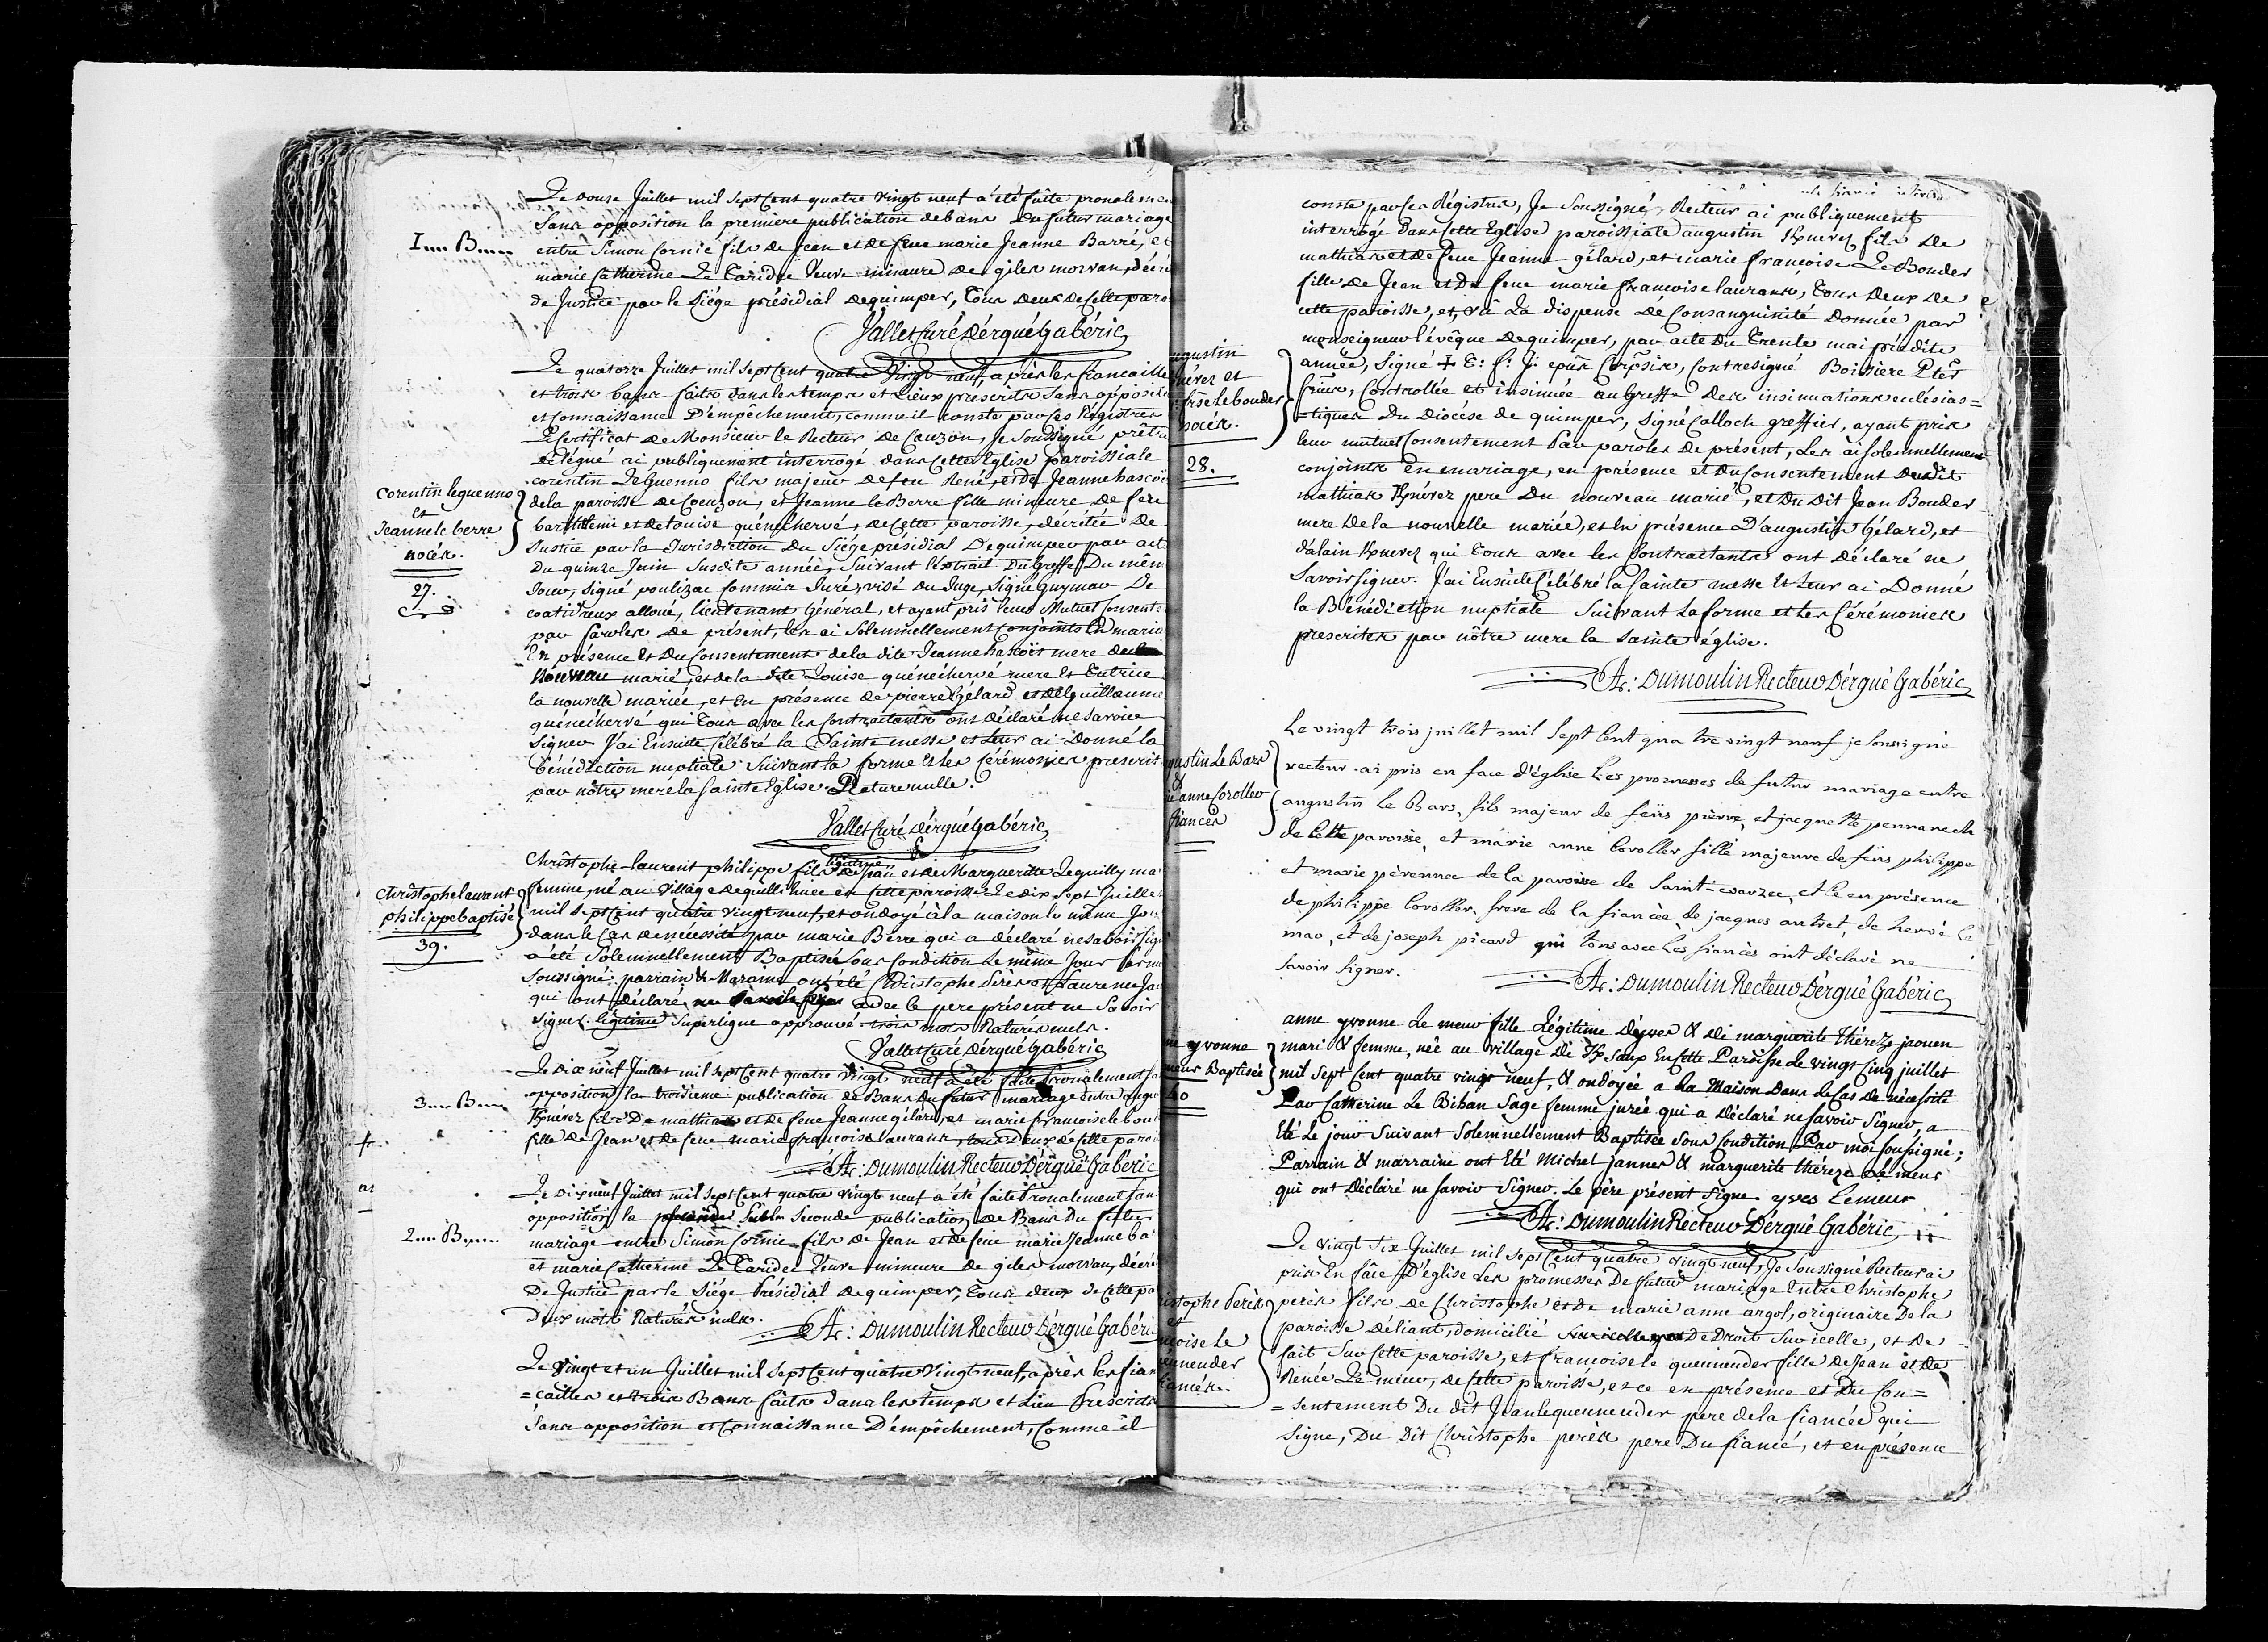 Le douze Juillet mil Sept Cent quatre vingt neuf a été faite pronalemen
Sans opposition la premiere publication de bans du futur mariage
I.... B.....
entre Simon Cornic fils de Jean et de feue marie Jeanne Barré, et
marie Catherine Le Taridec Veuve mineure de giles morvan, décré
de Justice par le Siége présidial de quimper, tous deux de cette paro
Vallet Curé d'érgué Gabéric
Le quatorze Juillet mil Sept Cent quatre vingt neuf, après les fiancaille
et trois bans faits dans les temps et Lieux prescrits Sans opposit
et Connaissance D'empêchement, comme il conste par les Registres
Certificat de Monsieur le Recteur de Cauzon, Je Soussigné prêtre
délégué ai publiquement interrogé dans Cette Eglise paroissiale
corentin Leguenno fils majeur de feu René, et de Jeanne hascoë
corentin leguenno
et
Jeanne le berre
nocés.
27.
de la paroisse de Coeuzon, et Jeanne le Berre fille mineure de feu
barthelemi et de Louise quénéchervé, de Cette paroisse, décrétée de
Justice par la Jurisdiction du Siége présidial De quimper par acte
du quinze Juin Susdite année, Suivant l'extrait du Greffe du mêm
Jour, signé poulizac Commis Juré, visé du Juge, Signé Guymar De
coatidreux alloué, lieutenant Général, et ayant pris leur Mutuel Consente
par paroles de présent, les ai Solemnellement conjoints En maria
En présence et du Consentement de la dite Jeanne hascoët mere du
Nouveau marié, et de la dite Louise quénéchervé mere et Tutrice
la nouvelle mariée, et en présence de pierre Gélard et de Guillaume
quénéchervé qui tous avec les Contractants ont déclaré ne Savoir
Signer. J'ai Ensuite Célébré la Sainte messe et Leur ai Donné la
bénédiction nuptiale Suivant la forme et les Cérémonies prescrit
par nôtre mere la Sainte Eglise. Rature nulle.
Vallet Curé d'érgué Gabéric
Christophe-laurent philippe fils légitime de Jean et de Marguerite Le quilly ma
Christophe laurent
philippe baptisé
39.
femme, né au village de quillihuec en Cette paroisse Le dix Sept Juille
mil Sept Cent quatre vingt neuf, et ondoyé à la maison le même Jou
dans le Cas de nécessité par marie Berre qui a déclaré ne Savoir sign
a été Solemnellement Baptisé Sous Condition Le même Jour par m
Soussigné: parrain & Maraine ont été Christophe Perès et Laurence Ja
qui ont déclaré avec le pere présent ne Savoir
signer. légitime Superligne approuvé trois mots Raturés nuls.
Vallet Curé d'érgué Gabéric
Le dix neuf Juillet mil Sept Cent quatre vingt neuf a été faite pronalement sa
opposition la troisieme publication de Bans du futur mariage entre augu
3.... B.....
Kgnévez fils De mathias et de feue Jeanne gélard, et marie francoise le boud
fille de Jean et de feue marie francoise laurans, tous deux de cette paroi
At: Dumoulin Recteur d'érgué Gabéric
Le dix neuf Juillet mil Sept Cent quatre vingt neuf a été faite Pronalement San
opposition la Seconde publication de Bans du futur
2.... B.....
mariage entre Simon Cornic fils de Jean et de feue marie Jeanne ba
et marie Catherine Le Taridec Veuve mineure de giles morvan, décré
De Justice par le Siége Présidial de quimper, tous deux de Cette pa
Deux mots Raturés nuls.
At: Dumoulin Recteur d'érgué Gabéri
Le Vingt et un Juillet mil Sept Cent quatre vingt neuf, après les fian
=çailles et trois Bans faits dans les temps et Lieu Prescrits
Sans opposition et Connaissance D'empêchement, Comme il
conste par les Régistres, Je Soussigné, Recteur ai publiquement
interrogé dans Cette Eglise paroissiale augustin Kgnevez fils de
mathias et de feue Jeanne gélard, et marie francoise Le Bouder
fille de Jean et de feue marie francoise laurans, tous deux de
cette paroisse, et, vû La dispense de Consanguinité donnée par
monseigneur l'évêque de quimper, par acte du trente mai prédite
ugustin
névez et
çoise Le bouder
nocés.
28.
année, Signé + T: f: J: epûs Corisiens, contresigné Boissiere Ptre
Sriûs, Controllée et insinuée au Greffe des insinuations eclésias=
=tiques du diocése de quimper, signé Calloch greffier, ayant pris
leur mutuel Consentement par paroles de présent, Les ai solemnellement
conjoints En mariage, en présence et du Consentement Du dit
mathias Kgnévez pere du nouveau marié, et du dit Jean Bouder
mere de la nouvelle mariée, et en présence D'augustin Gélard, et
d'alain Kgnevez qui tous avec les Contractants ont déclaré ne
Savoir signer. J'ai Ensuite Célébré la Sainte messe et Leur ai Donné
la Bénédiction nuptiale Suivant La forme et Les Cérémonies
prescrites par nôtre mere la Sainte église.
At: Dumoulin Recteur d'érgué Gabéric
Le vingt trois juillet mil sept Cent quatre vingt neuf je soussigné
gustin Le Bars
et
ie anne Corollev
fiancés
recteur ai pris en face d'église les promesses de futur mariage entre
augustin Le Bars, fils majeur de feüs pièrre, et jacquette pennanech
de Cette paroisse, et marie anne Coroller fille majeure de feüs philippe
et marie pérennec de la paroisse de Saint-evarzec, et Ce en présence
de philippe Coroller, frere de la fiancée de jacques autret, de hervé le
mao, et de joseph picard qui tous avec les fiancés ont déclaré ne
savoir signer.
At: Dumoulin Recteur d'érgué Gabéric
anne yvonne Le meur fille Légitime d'yves & de marguerite thérèze jaouen
ne yvonne
meur Baptisée
40
mari & femme, née au village de Kgsaux En Cette Paroisse Le vingt Cinq juillet
mil Sept Cent quatre vingt neuf, & ondoyée a La Maison Dans le Cas de nécessité
Par Catherine Le Bihan Sage femme jurée qui a Déclaré ne savoir Signer, a
Eté Le jour Suivant Solemnellement Baptisée Sous Condition Par moi soussigné;
Parrain & marraine ont Eté Michel jannes & marguerite thérèze Le meur
qui ont Déclaré ne savoir Signer. Le père présent signe. yves Lemeur
At: Dumoulin Recteur d'érgué Gabéric
Le vingt Six Juillet mil Sept Cent quatre vingt neuf, Je Soussigné Recteur ai
pris En fâce d'église Les promesses De futur mariage Entre Christophe
ristophe Perès
et
nçoise Le
uennender
fiancés.
perès fils de Christophe et de marie anne argol, originaire De la
paroisse d'éliant, domicilié De Droit Sur icelle, et de
fait Sur Cette paroisse, et francoise le quennender fille de Jean et de
Renée Le mieur, de Cette paroisse, et ce en présence et Du Con=
=sentement Du dit Jean le quennender pere de la fiancée qui
Signe, Du Dit Christophe perès pere Du fiancé, et en présence